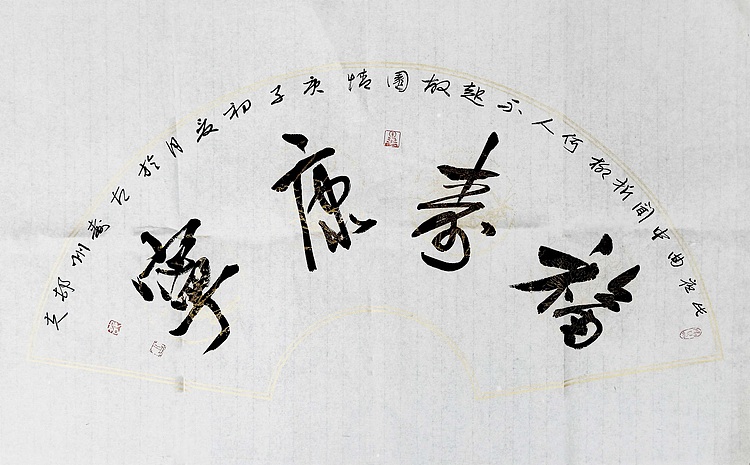 福壽康寧
此夜曲中聞折柳何人不起故園情庚子初夏月於古壽州